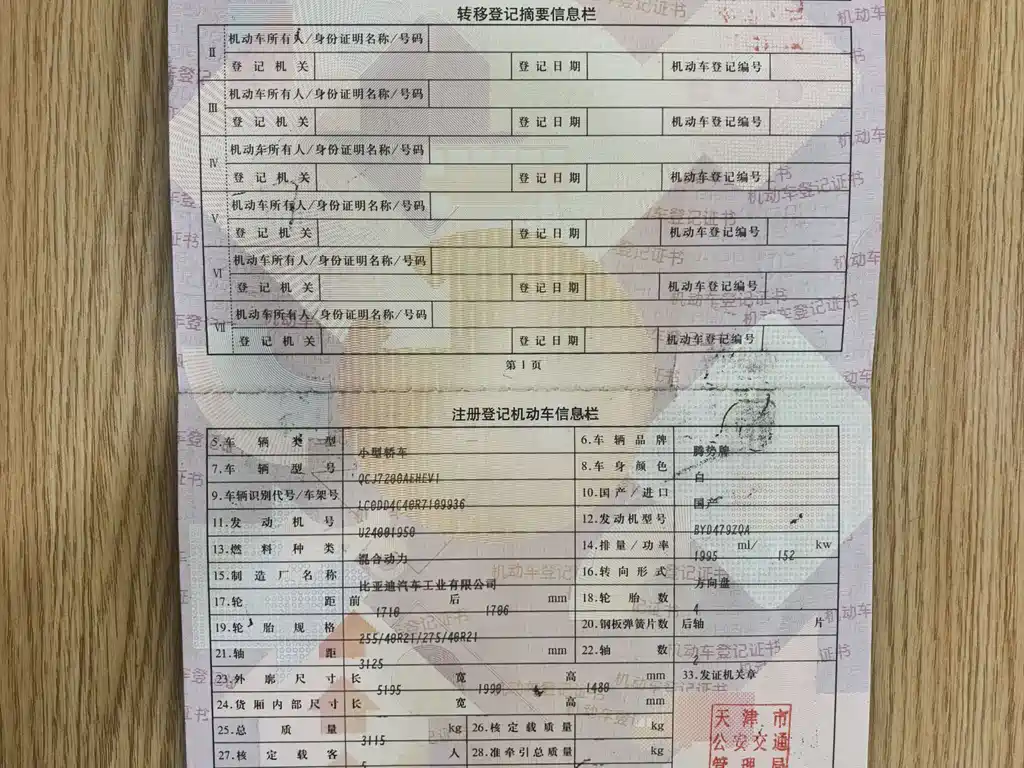 转移登记摘要信息栏
Ⅱ 机动车所有人/身份证明名称/号码
登记机关 登记日期 机动车登记编号
Ⅲ 机动车所有人/身份证明名称/号码
登记机关 登记日期 机动车登记编号
Ⅳ 机动车所有人/身份证明名称/号码
登记机关 登记日期 机动车登记编号
Ⅴ 机动车所有人/身份证明名称/号码
登记机关 登记日期 机动车登记编号
Ⅵ 机动车所有人/身份证明名称/号码
登记机关 登记日期 机动车登记编号
Ⅶ 机动车所有人/身份证明名称/号码
登记机关 登记日期 机动车登记编号
第1页
注册登记机动车信息栏
5.车辆类型 小型轿车 6.车辆品牌 腾势牌
7.车辆型号 QCJ7200AEHEV1 8.车身颜色 白
9.车辆识别代号/车架号 LC0DD4C40R7109936 10.国产/进口 国产
11.发动机号 U24001950 12.发动机型号 BYD479ZQA
13.燃料种类 混合动力 14.排量/功率 1995 ml/ 152 kw
15.制造厂名称 比亚迪汽车工业有限公司 16.转向形式 方向盘
17.轮距 前 1710 后 1706 mm 18.轮胎数 4
19.轮胎规格 255/40R21/275/40R21 20.钢板弹簧片数 后轴 片
21.轴距 3125 mm 22.轴数 2
23.外廓尺寸 长 5195 宽 1990 高 1480 mm 33.发证机关章
24.货厢内部尺寸 长 宽 高 mm
25.总质量 3115 kg 26.核定载质量 kg
27.核定载客 5 人 28.准牵引总质量 kg
天津市
公安交通
管理局
机动车登记证书